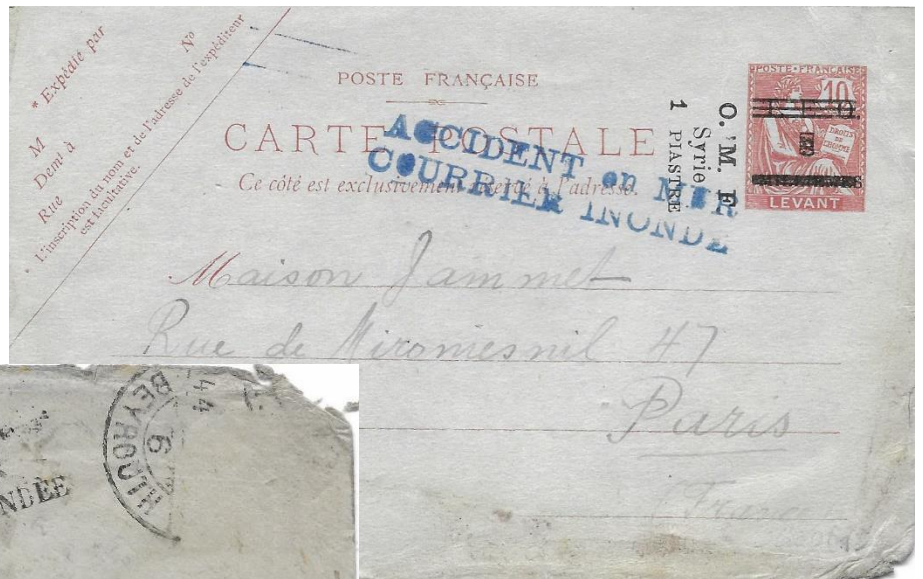 * Expédié par
M
N°
Demt à
Rue
L'inscription du nom et de l'adresse de l'expéditeur
est facultative.
POSTE FRANÇAISE
CARTE POSTALE
Ce côté est exclusivement réservé à l'adresse.
ACCIDENT en MER
COURRIER INONDÉ
O. M. F.
Syrie
1 PIASTRE
POSTE FRANÇAISE
10
DROITS DE L'HOMME
LEVANT
Maison Jammet
Rue de Miromesnil 47
Paris
(France)
BEYROUTH
6
44
NDÉE